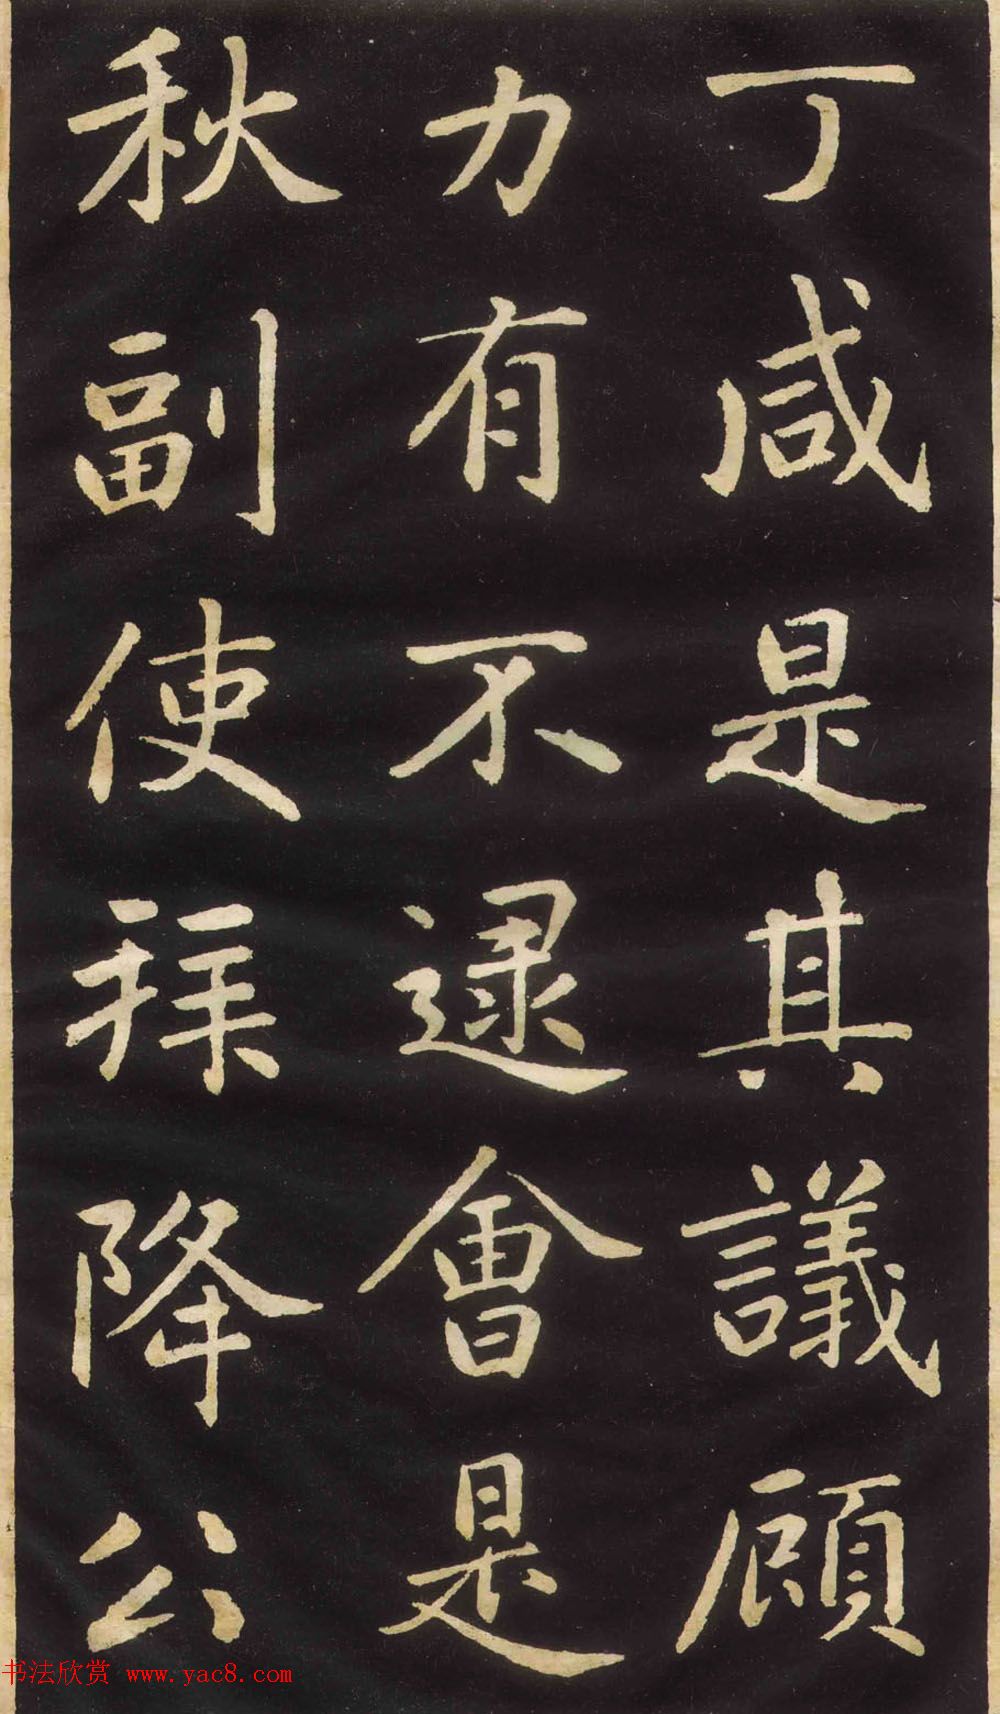 丁咸是其議顧
力有不逮會是
秋副使拜降公
书法欣赏 www.yac8.com